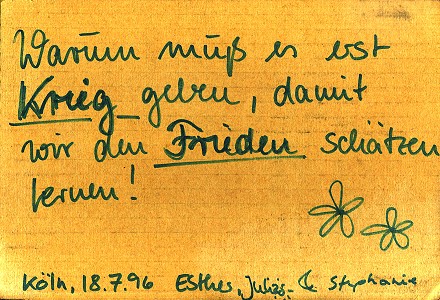 Warum muß es erst
Krieg geben, damit
wir den Frieden schätzen
lernen!
Köln, 18.7.96 Esther, Julia & Stephanie